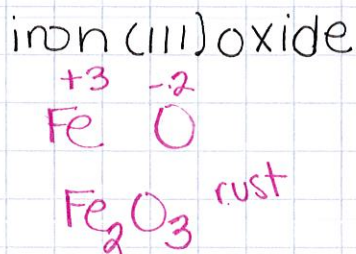 iron (III) oxide
+3 -2
Fe O
Fe₂O₃ rust